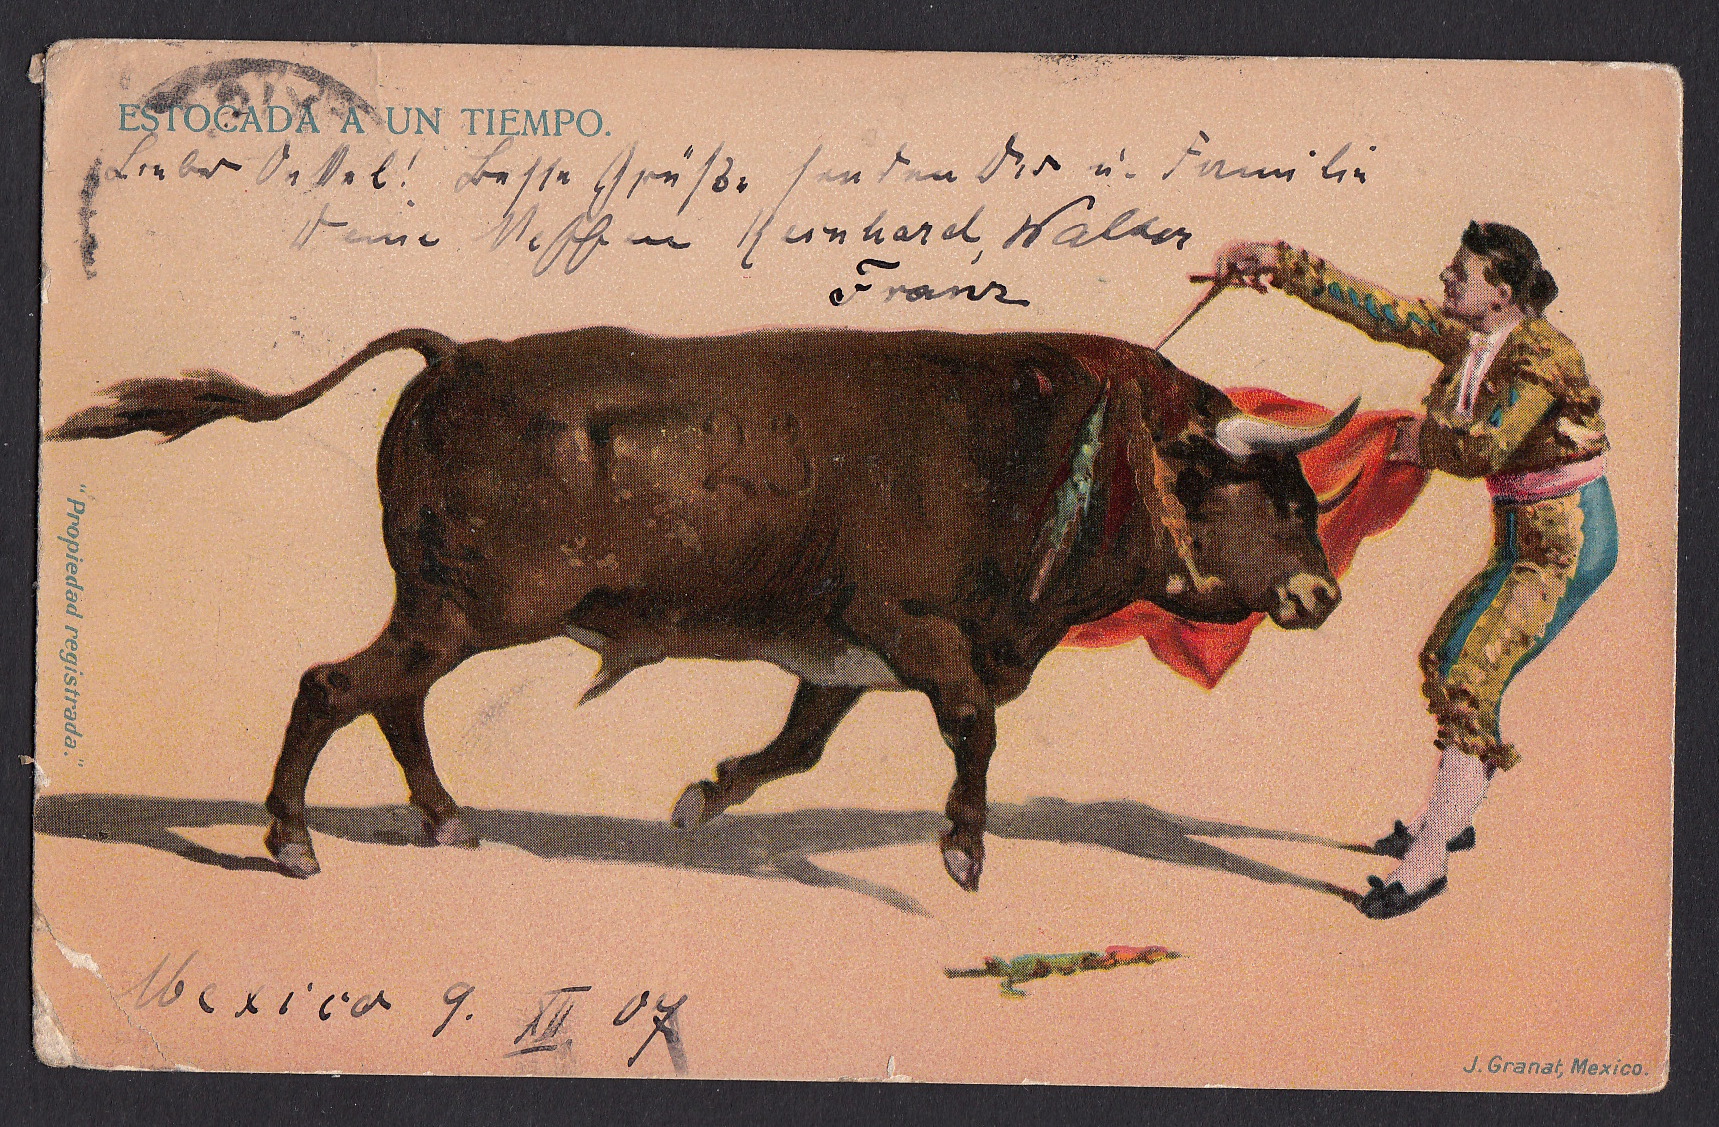 ESTOCADA A UN TIEMPO.
Lieber Onkel! Beste Grüße senden Dir u. Familie
Deine Neffen Reinhard, Walter
Franz
"Propiedad registrada."
Mexico 9. XII 07
J. Granat, Mexico.